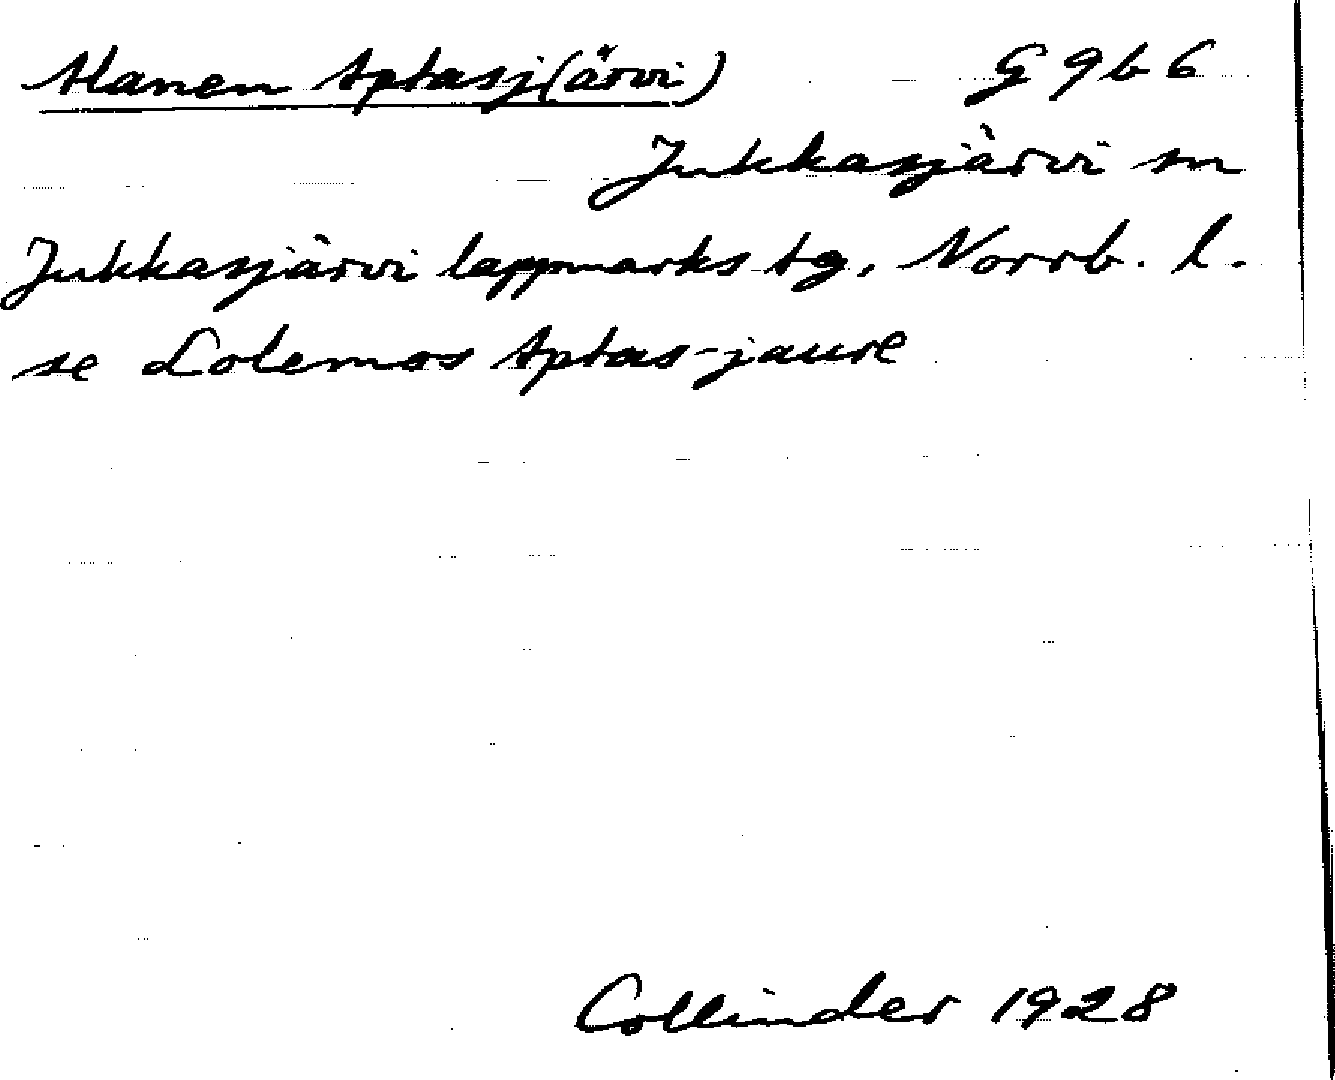 Alanen Aptasj(ärvi) G 9 b 6
Jukkasjärvi sn
Jukkasjärvi lappmarks tg, Norrb. l.
se Lolemos Aptas-jaure
Collinder 1928